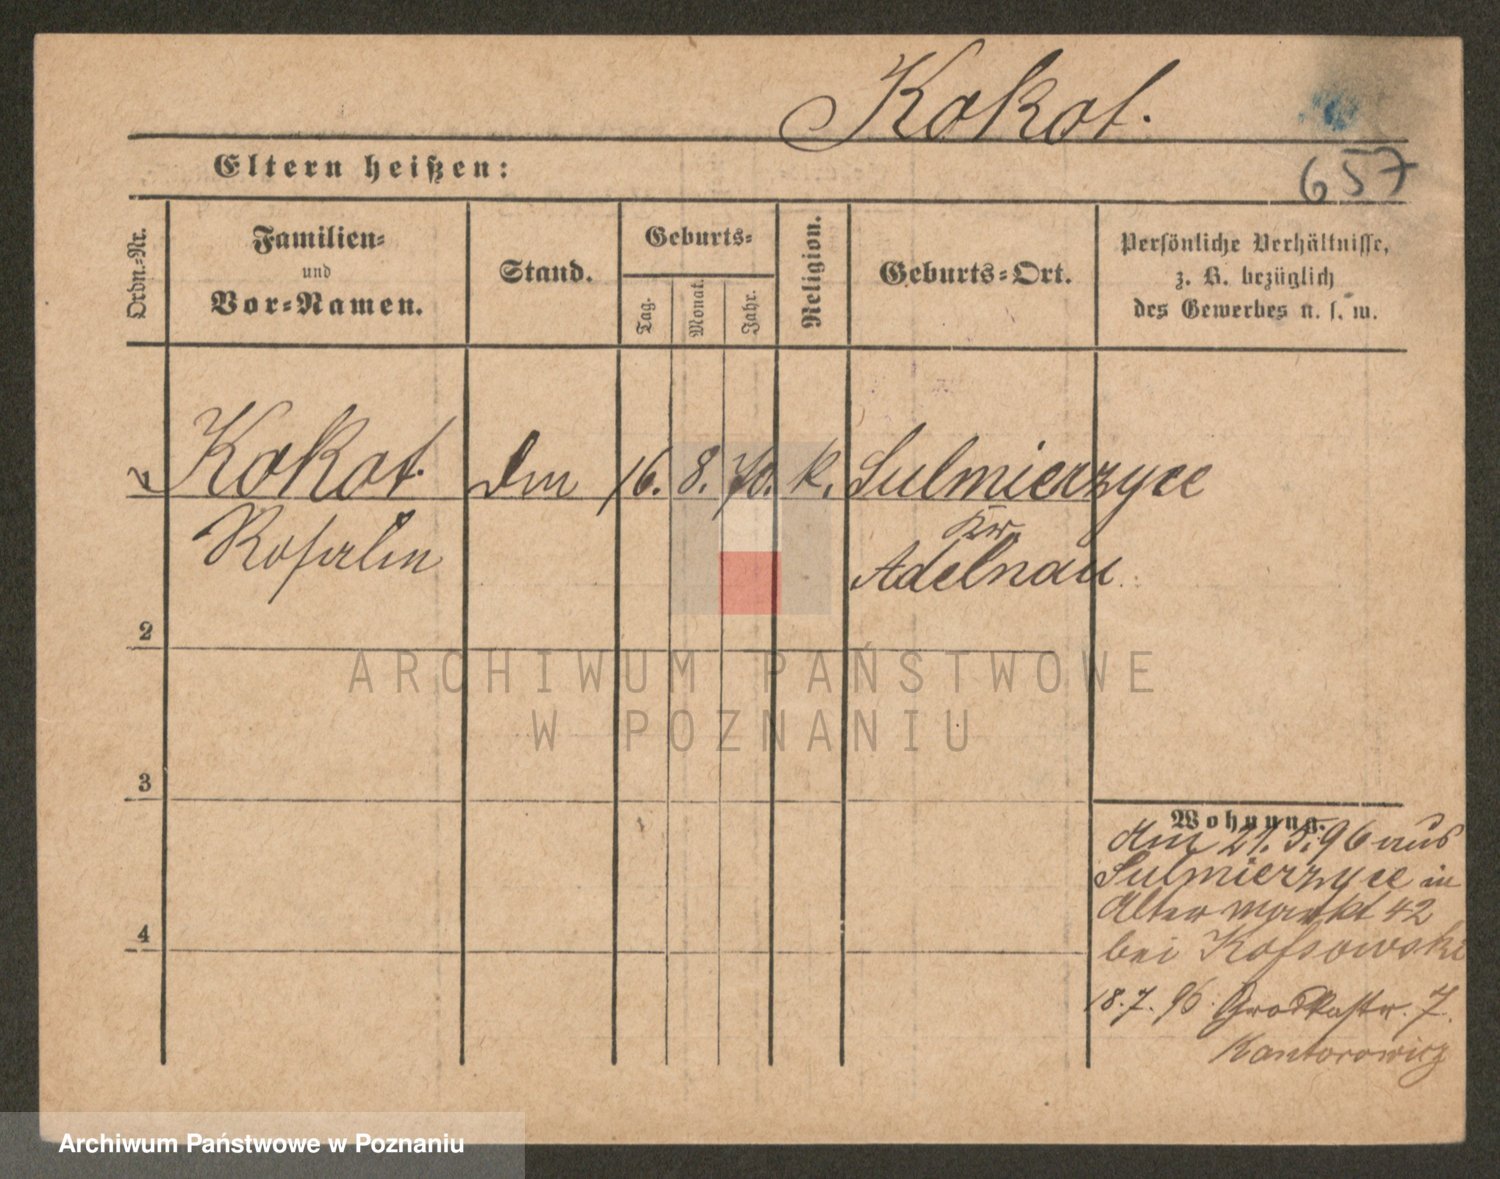 Kokot.
657
Eltern heißen:
Ordn.-Nr.
Familien-
und
Vor-Namen.
Stand.
Geburts-
Tag.
Monat.
Jahr.
Religion.
Geburts-Ort.
Persönliche Verhältnisse,
z. B. bezüglich
des Gewerbes u. s. w.
Kokot. Dm 16. 8. 70. k. Sulmierzyce
Kr.
Rosalin Adelnau
2
3
4
ARCHIWUM PAŃSTWOWE
W POZNANIU
Wohnung.
Am 21.5.96 aus
Sulmierzyce in
Alter Markt 42
bei Kossowski
18.7.96. Grostr. 7.
Kantorowicz
Archiwum Państwowe w Poznaniu